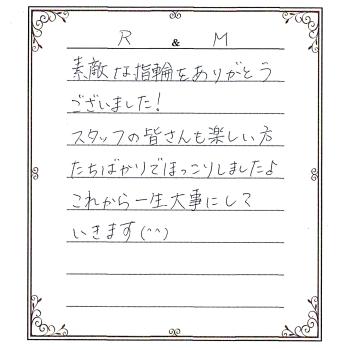 R & M
素敵な指輪をありがとう
ございました!
スタッフの皆さんも楽しい方
たちばかりでほっこりしましたよ
これから一生大事にして
いきます(^^)